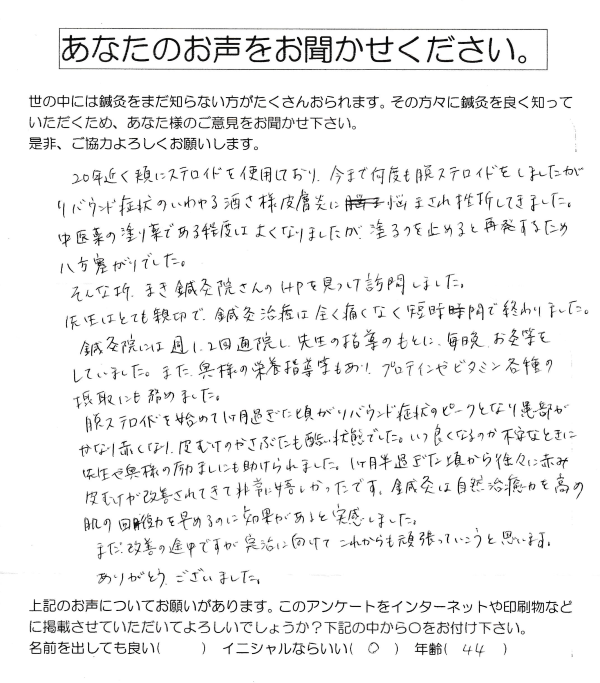 あなたのお声をお聞かせください。
世の中には鍼灸をまだ知らない方がたくさんおられます。その方々に鍼灸を良く知って
いただくため、あなた様のご意見をお聞かせ下さい。
是非、ご協力よろしくお願いします。
20年近く頬にステロイドを使用しており、今まで何度も脱ステロイドをしましたが
リバウンド症状のいわゆる酒さ様皮膚炎に悩まされ挫折してきました。
中医薬の塗り薬である程度はよくなりましたが、塗るのを止めると再発するため
八方塞がりでした。
そんな折、まき鍼灸院さんのHPを見つけ訪問しました。
先生はとても親切で、鍼灸治療は全く痛くなく短時間で終わりました。
鍼灸院には週1、2回通院し、先生の指導のもとに、毎晩、お灸等を
していました。また、奥様の栄養指導等もあり、プロテインやビタミン各種の
摂取にも努めました。
脱ステロイドを始めて1か月過ぎた頃がリバウンド症状のピークとなり患部が
かなり赤くなり、皮むけのかさぶたも酷い状態でした。いつ良くなるのか不安なときに
先生や奥様の励ましにも助けられました。1か月半過ぎた頃から徐々に赤み
皮むけが改善されてきて非常に嬉しかったです。鍼灸は自然治癒力を高め
肌の回復力を早めるのに効果があると実感しました。
まだ改善の途中ですが完治に向けてこれからも頑張っていこうと思います。
ありがとうございました。
上記のお声についてお願いがあります。このアンケートをインターネットや印刷物など
に掲載させていただいてよろしいでしょうか？下記の中から○をお付け下さい。
名前を出しても良い( ) イニシャルならいい( ○ ) 年齢( 44 )